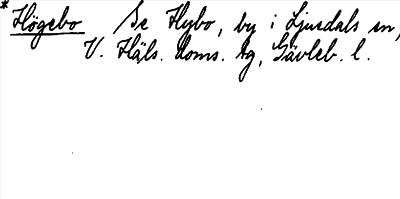 * Högebo Se Hybo, by i Ljusdals sn,
V. Häls. doms. tg, Gävleb. l.